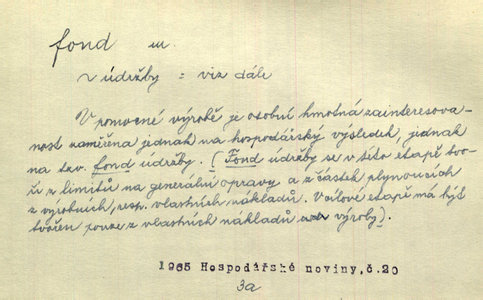 fond m.
~ údržby = viz dále
V pomocné výrobě je osobní hmotná zainteresova-
nost zaměřena jednak na hospodářský výsledek, jednak
na tzv. fond údržby. (Fond údržby se v této etapě tvo-
ří z limitů na generální opravy a z částek plynoucích
z výrobních, resp. vlastních nákladů. V cílové etapě má být
tvořen pouze z vlastních nákladů výroby).
1965 Hospodářské noviny,č.20
3a